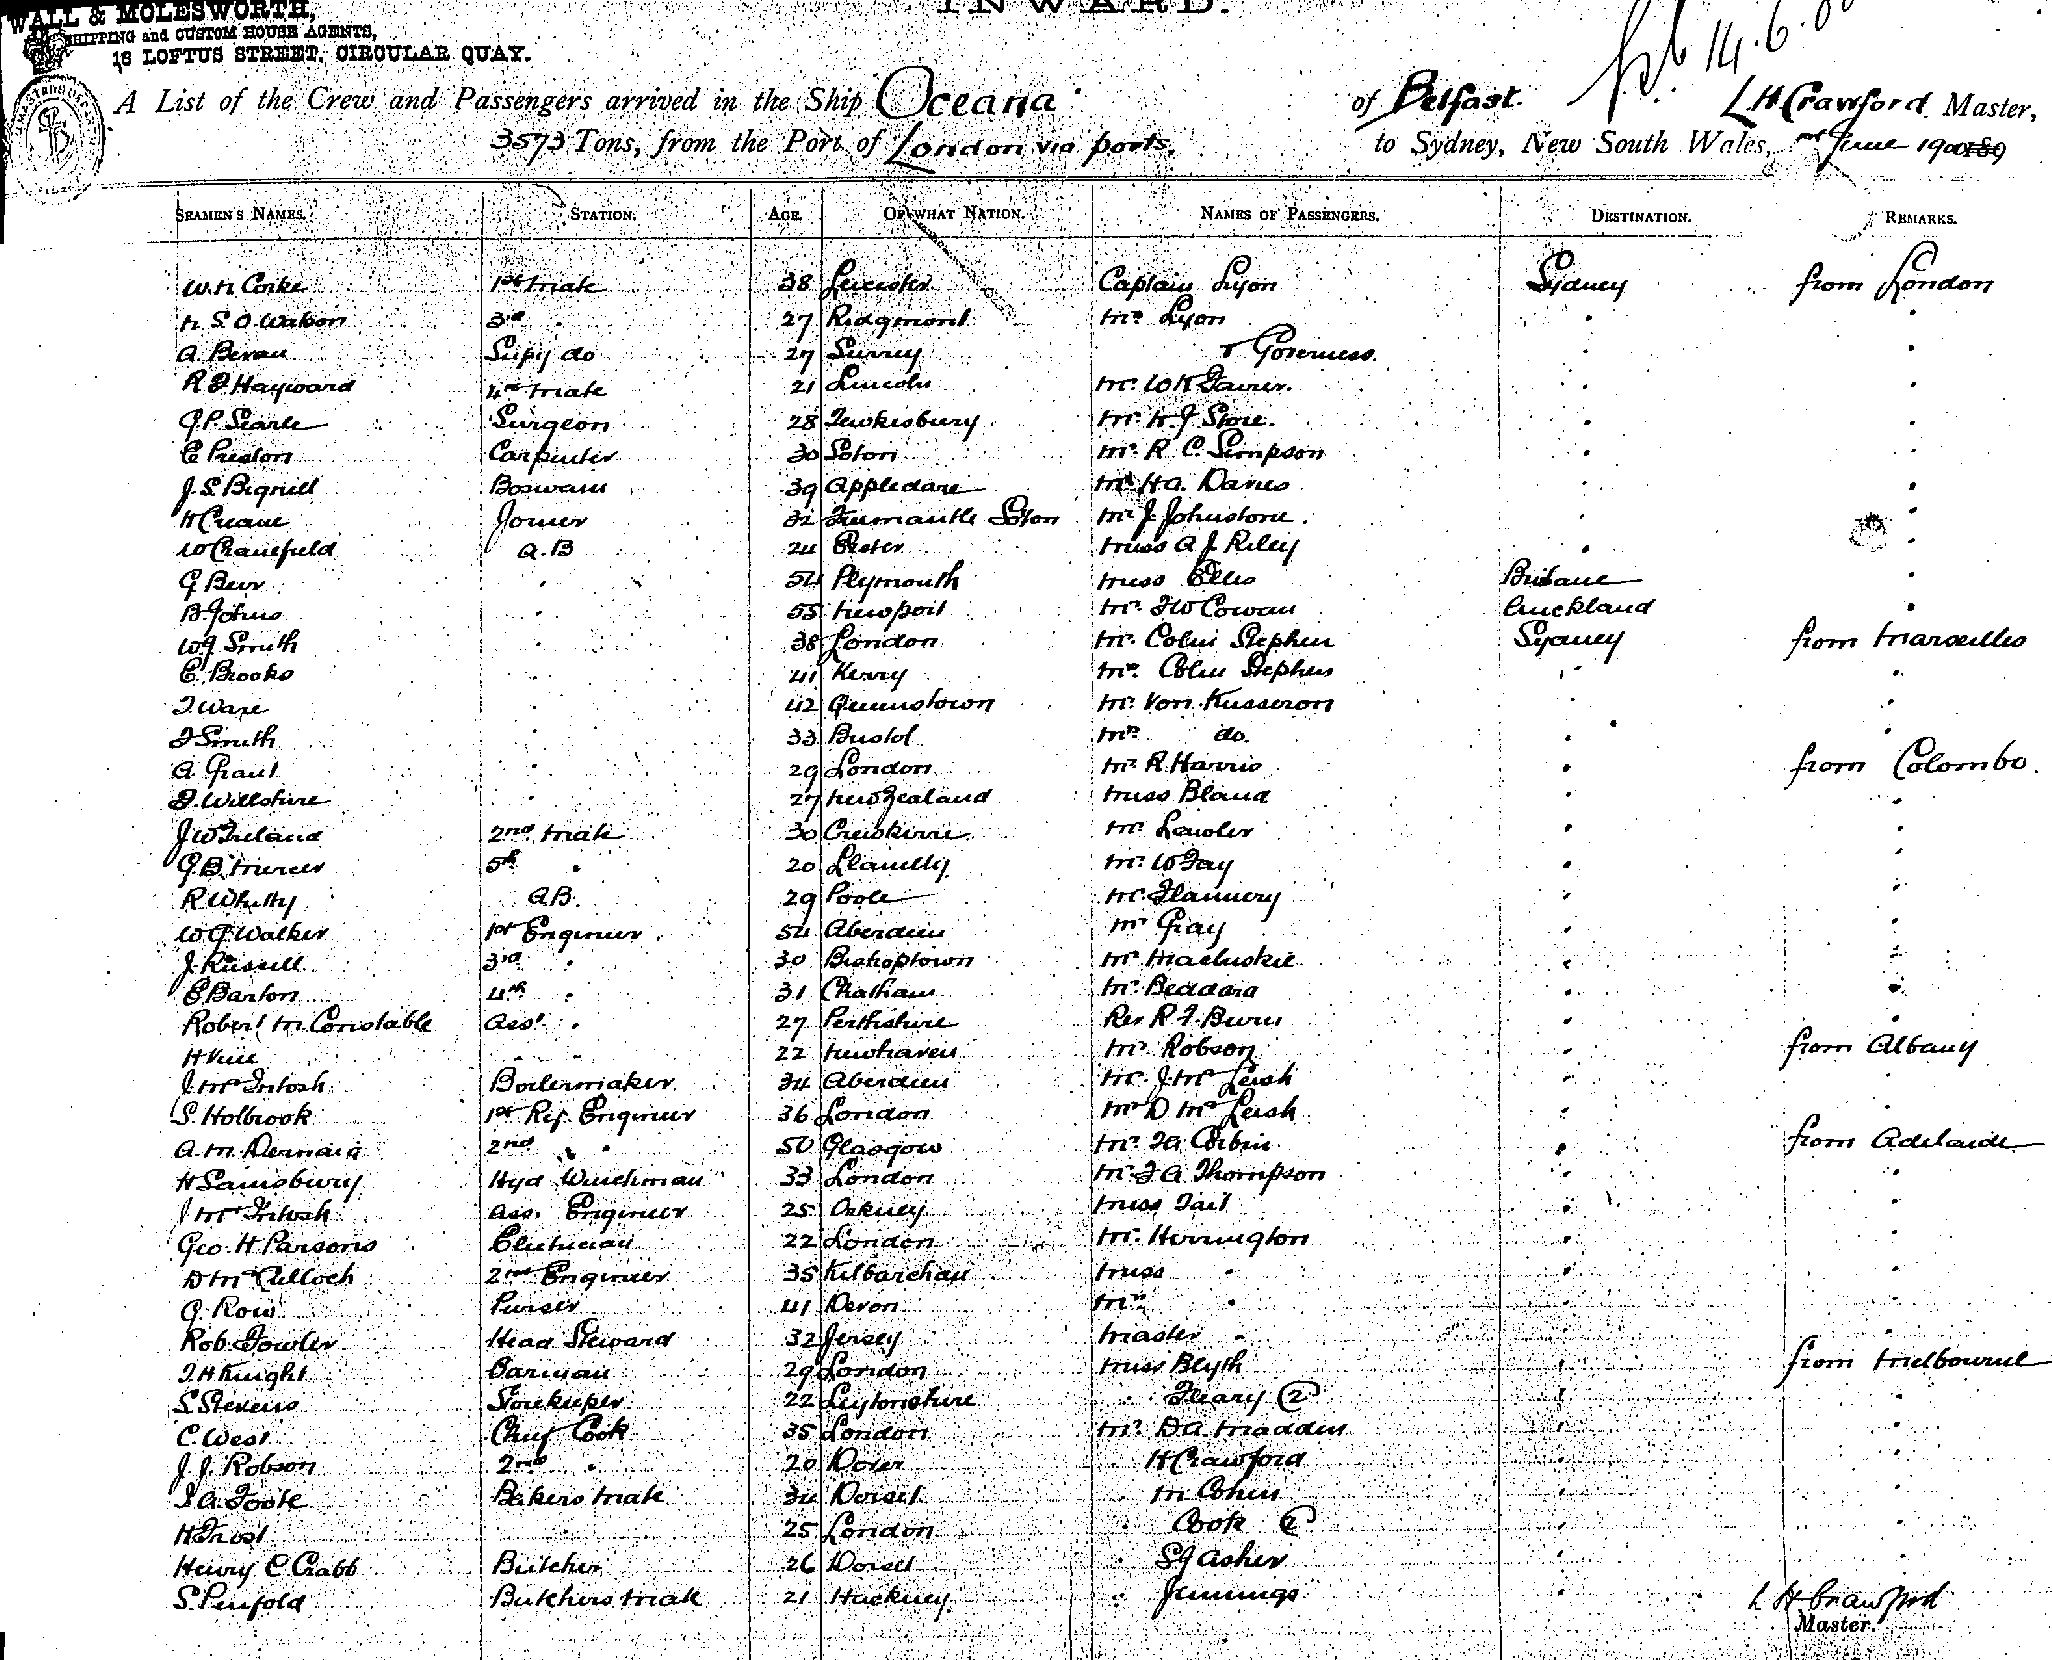 INWARD.
WALL & MOLESWORTH,
SHIPPING and CUSTOM HOUSE AGENTS,
18 LOFTUS STREET, CIRCULAR QUAY.
14.6.00
A List of the Crew and Passengers arrived in the Ship Oceana of Belfast. L H Crawford Master,
3573 Tons, from the Port of London via ports, to Sydney, New South Wales, June 1900 189
SEAMEN'S NAMES. STATION. AGE. OF WHAT NATION. NAMES OF PASSENGERS. DESTINATION. REMARKS.
W.H Corke 1st Mate 38 Leicester Captain Lyon Sydney from London
H S.O. Watson 3rd " 27 Ridgmont Mrs Lyon " "
A. Bevan Supy do 27 Surrey & Governess. " "
R F Hayward 4th Mate 21 Lincoln Mr. W H " "
G P. Searle Surgeon 28 Tewkesbury Mr. H J Stone. " "
E Preston Carpenter 30 Soton Mr. R C. Simpson " "
J. S. Bignell Boswain 39 Appledore H A. Davies " "
H Crane Joiner 32 Freemantle Soton Mr J. Johnstone. " "
W Chanefield A.B 24 Exeter Miss A J. Riley " "
G Beer " 54 Plymouth Miss Ellis Brisbane "
B. Johns " 55 Newport Mr. F W Cowan Auckland "
W J Smith " 38 London Mr. Colin Stephen Sydney from Marseilles
E. Brooks " 41 Kerry Mrs. Colin Stephen " "
F Ware " 42 Queenstown Mr. Von Kusseron "
F Smith " 33 Bristol Mrs do. " "
A. Grant " 29 London Mr. R. Harris " from Colombo.
F. Willshire " 27 New Zealand Miss Bland " "
J W Ireland 2nd Mate 30 Mr. Lawler " "
G. B. Mercer 5th " 20 Llanelly Mr. W Fay " "
R Whitty A.B. 29 Poole Mr. Flannery " "
W G Walker 1st Engineer 54 Aberdeen Mr Gray " "
J. Russell 3rd " 30 Bishoptown Mr Macluskie " "
E Barton 4th " 31 Chatham Mr. Beddara " "
Robert M. Constable Asst. " 27 Perthshire Rev R. F. Burns " "
H Vine " " 22 Newhaven Mr. Robson " from Albany
J. McIntosh Boilermaker 34 Aberdeen Mr. J. McLeish " "
S. Holbrook 1st Ref. Engineer 36 London Mr D McLeish " "
A. M. Dermaid 2nd " " 50 Glasgow Mr. F A. Corbin " from Adelaide
H Sainsbury Hyd Winchman 33 London Mr. F A Thompson " "
J McIntosh Ass. Engineer 25 Orkney Miss Tait " "
Geo. H Parsons Electrician 22 London Mr. Herrington " "
D McCulloch 2nd Engineer 35 Kilbarchan Miss " " "
G. Row Purser 41 Devon Mrs " " "
Rob. Fowler Head Steward 32 Jersey Master " " "
F. H Knight Barman 29 London Miss Blyth " from Melbourne
S Stevens Storekeeper 22 Leytonshire " Fleary (2) " "
C. West Chief Cook 35 London Mr. D A. Madden " "
J. J. Robson 2nd " 20 Dover H Crawford " "
F A. Foote Bakers Mate 34 Dorset " M Cohen " "
H Frost 25 London " Cook (2) " "
Henry C Crabb Butcher 26 Dorset " S J Asher " "
S. Penfold Butchers Mate 21 Hackney " Jennings "
L H Crawford
Master.